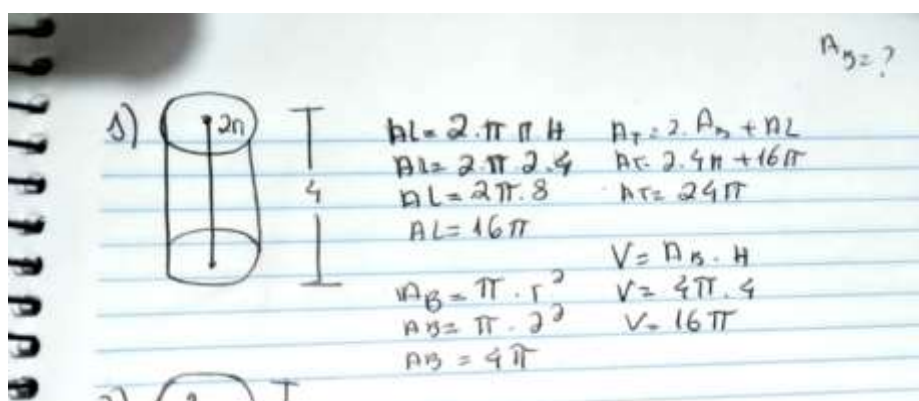 AB=?
1)
2r
4
AL=2.π r H
AL=2.π.2.4
AL=2π.8
AL=16π
AB=π.r²
AB=π.2²
AB=4π
AT=2.AB+AL
AT=2.4π+16π
AT=24π
V=AB.H
V=4π.4
V=16π
2)